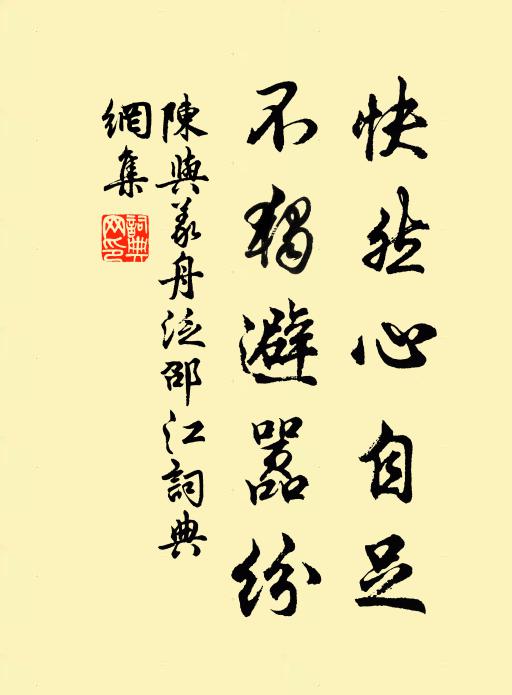 快然心自足
不獨避嚣紛
陳與義舟泛邵江詞典
網集
詞典網印